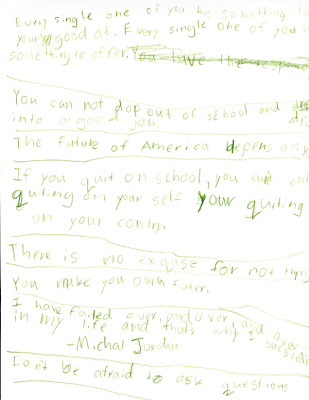 Every single one of you he something th
your good at. Every single one of you h
something to offer. You have the respons
You can not dop out of school and
into a good job.
The future of America depens only
If you quit on school, you an
quiting on your self your quiting
on your contry.
There is no exquse for not trying
You make you own futer.
I have failed over, and over, and over
in my life and thats why I sucside
-Michal Jordan
Don't be afraid to ask questions